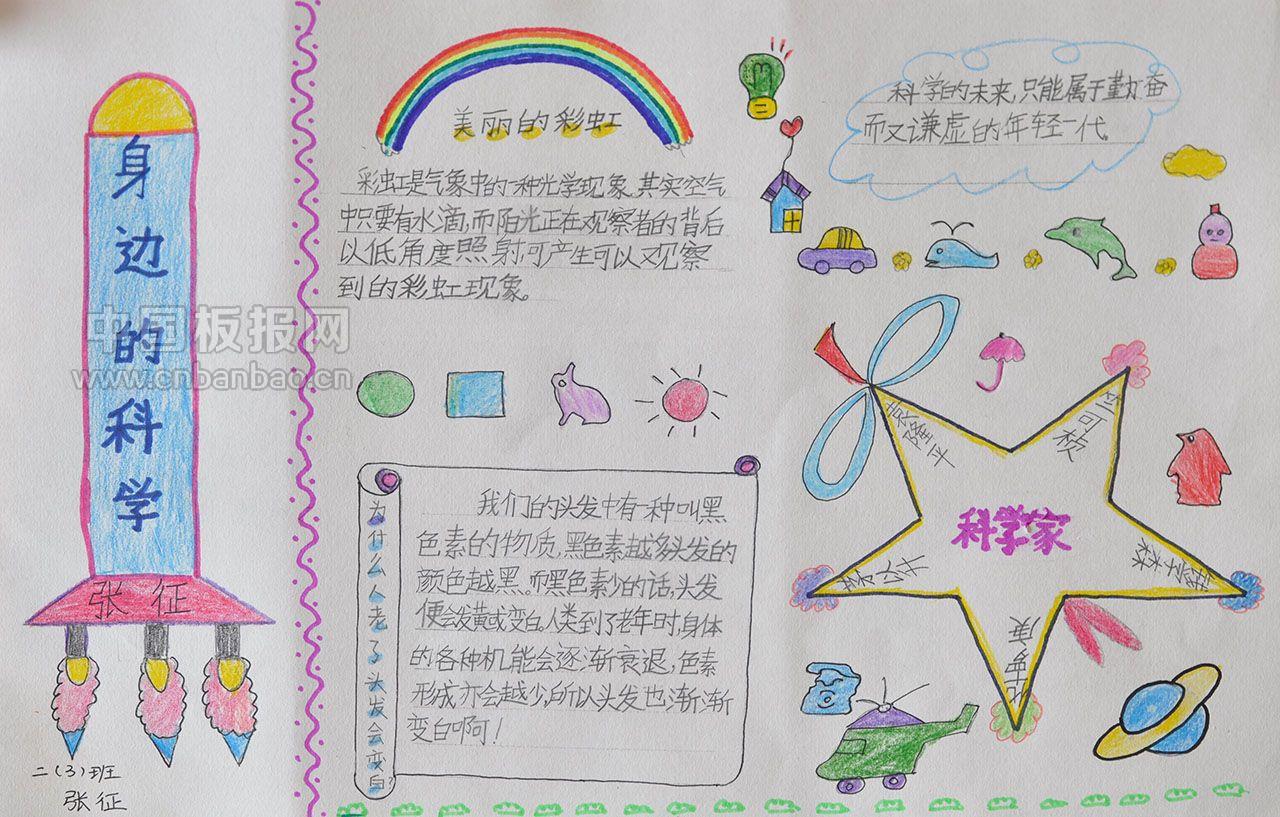 身边的科学
张征
二(3)班
张征
中国板报网
www.cnbanbao.cn
美丽的彩虹
彩虹是气象中的一种光学现象。其实空气
中只要有水滴,而阳光正在观察者的背后
以低角度照射,可产生可以观察
到的彩虹现象。
为什么人老了头发会变白?
我们的头发中有一种叫黑
色素的物质,黑色素越多头发的
颜色越黑。而黑色素少的话,头发
便会发黄或变白。人类到了老年时,身体
的各种机能会逐渐衰退,色素
形成亦会越少,所以头发也渐渐
变白啊!
科学的未来,只能属于勤奋
而又谦虚的年轻一代。
袁隆平
竺可桢
科学家
李四光
钱学森